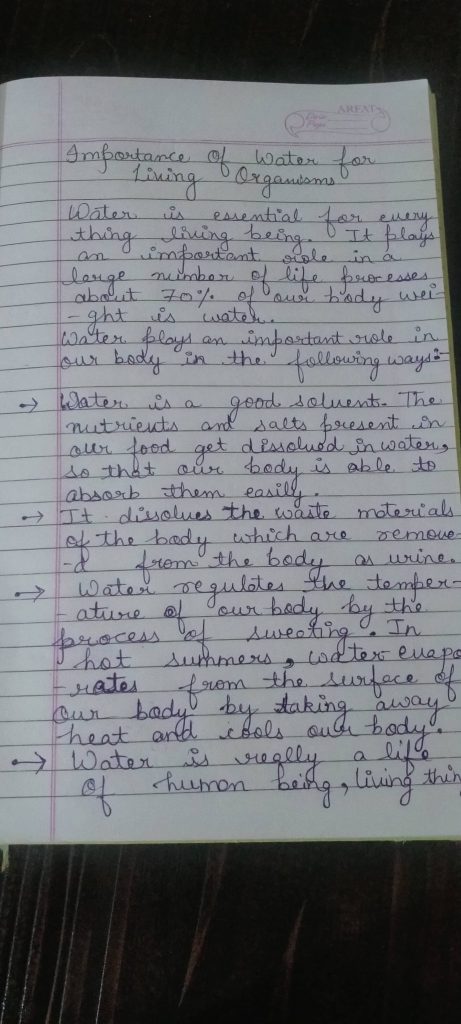 AREAT
Date
Page
Importance of Water for
Living Organisms
Water is essential for every
thing living being. It plays
an important role in a
large number of life processes
about 70% of our body wei-
-ght is water.
Water plays an important role in
our body in the following ways:-
→ Water is a good solvent. The
nutrients and salts present in
our food get dissolved in water,
so that our body is able to
absorb them easily.
→ It dissolves the waste materials
of the body which are remove-
-d from the body as urine.
→ Water regulates the temper-
-ature of our body by the
process of sweating. In
hot summers, water evapo
-rates from the surface of
our body by taking away
heat and cools our body.
→ Water is really a life
of human being, living thin